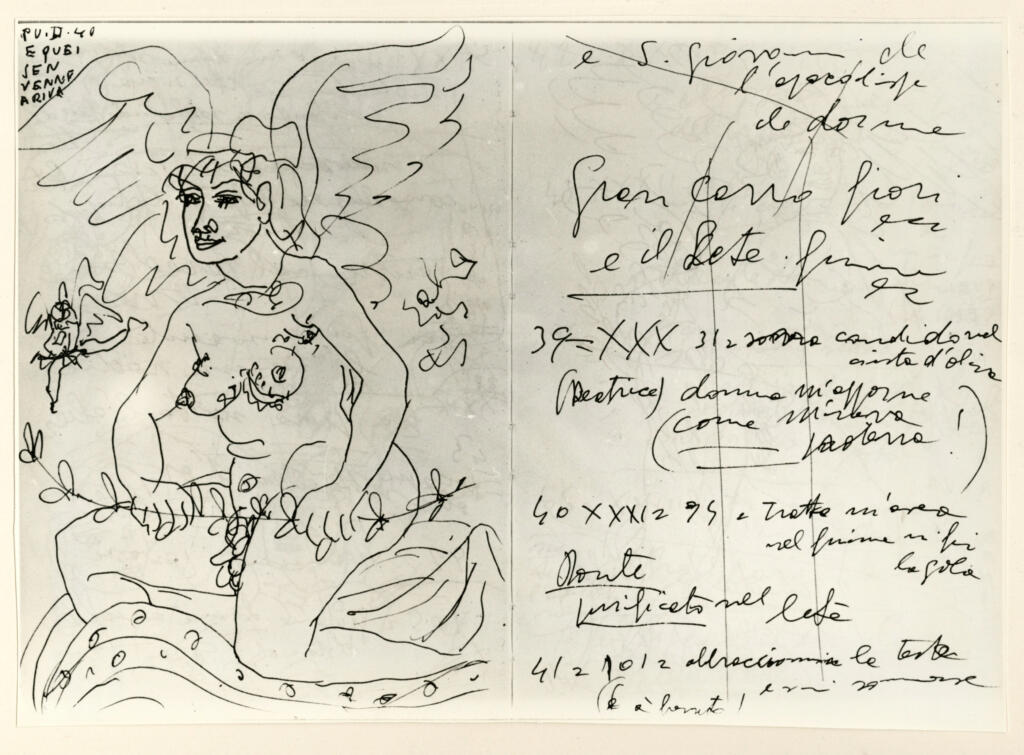 PU.II.40
E QUEI
SEN
VENNE
A RIVA
e S. Giovanni de
l'apocalisse
che dorme
Gran Carro fiori
ecc
e il Lete. fiume
ecc
39=XXX 31= sovra candido vel
cinta d'oliva
(Beatrice) donna m'apparve
(come
!)
40 XXXI= 94 = Tratto m'avea
nel fiume
la gola
Dante
purificato nel Lete
41= 101= abbracciommi la testa
e mi sommerse
!